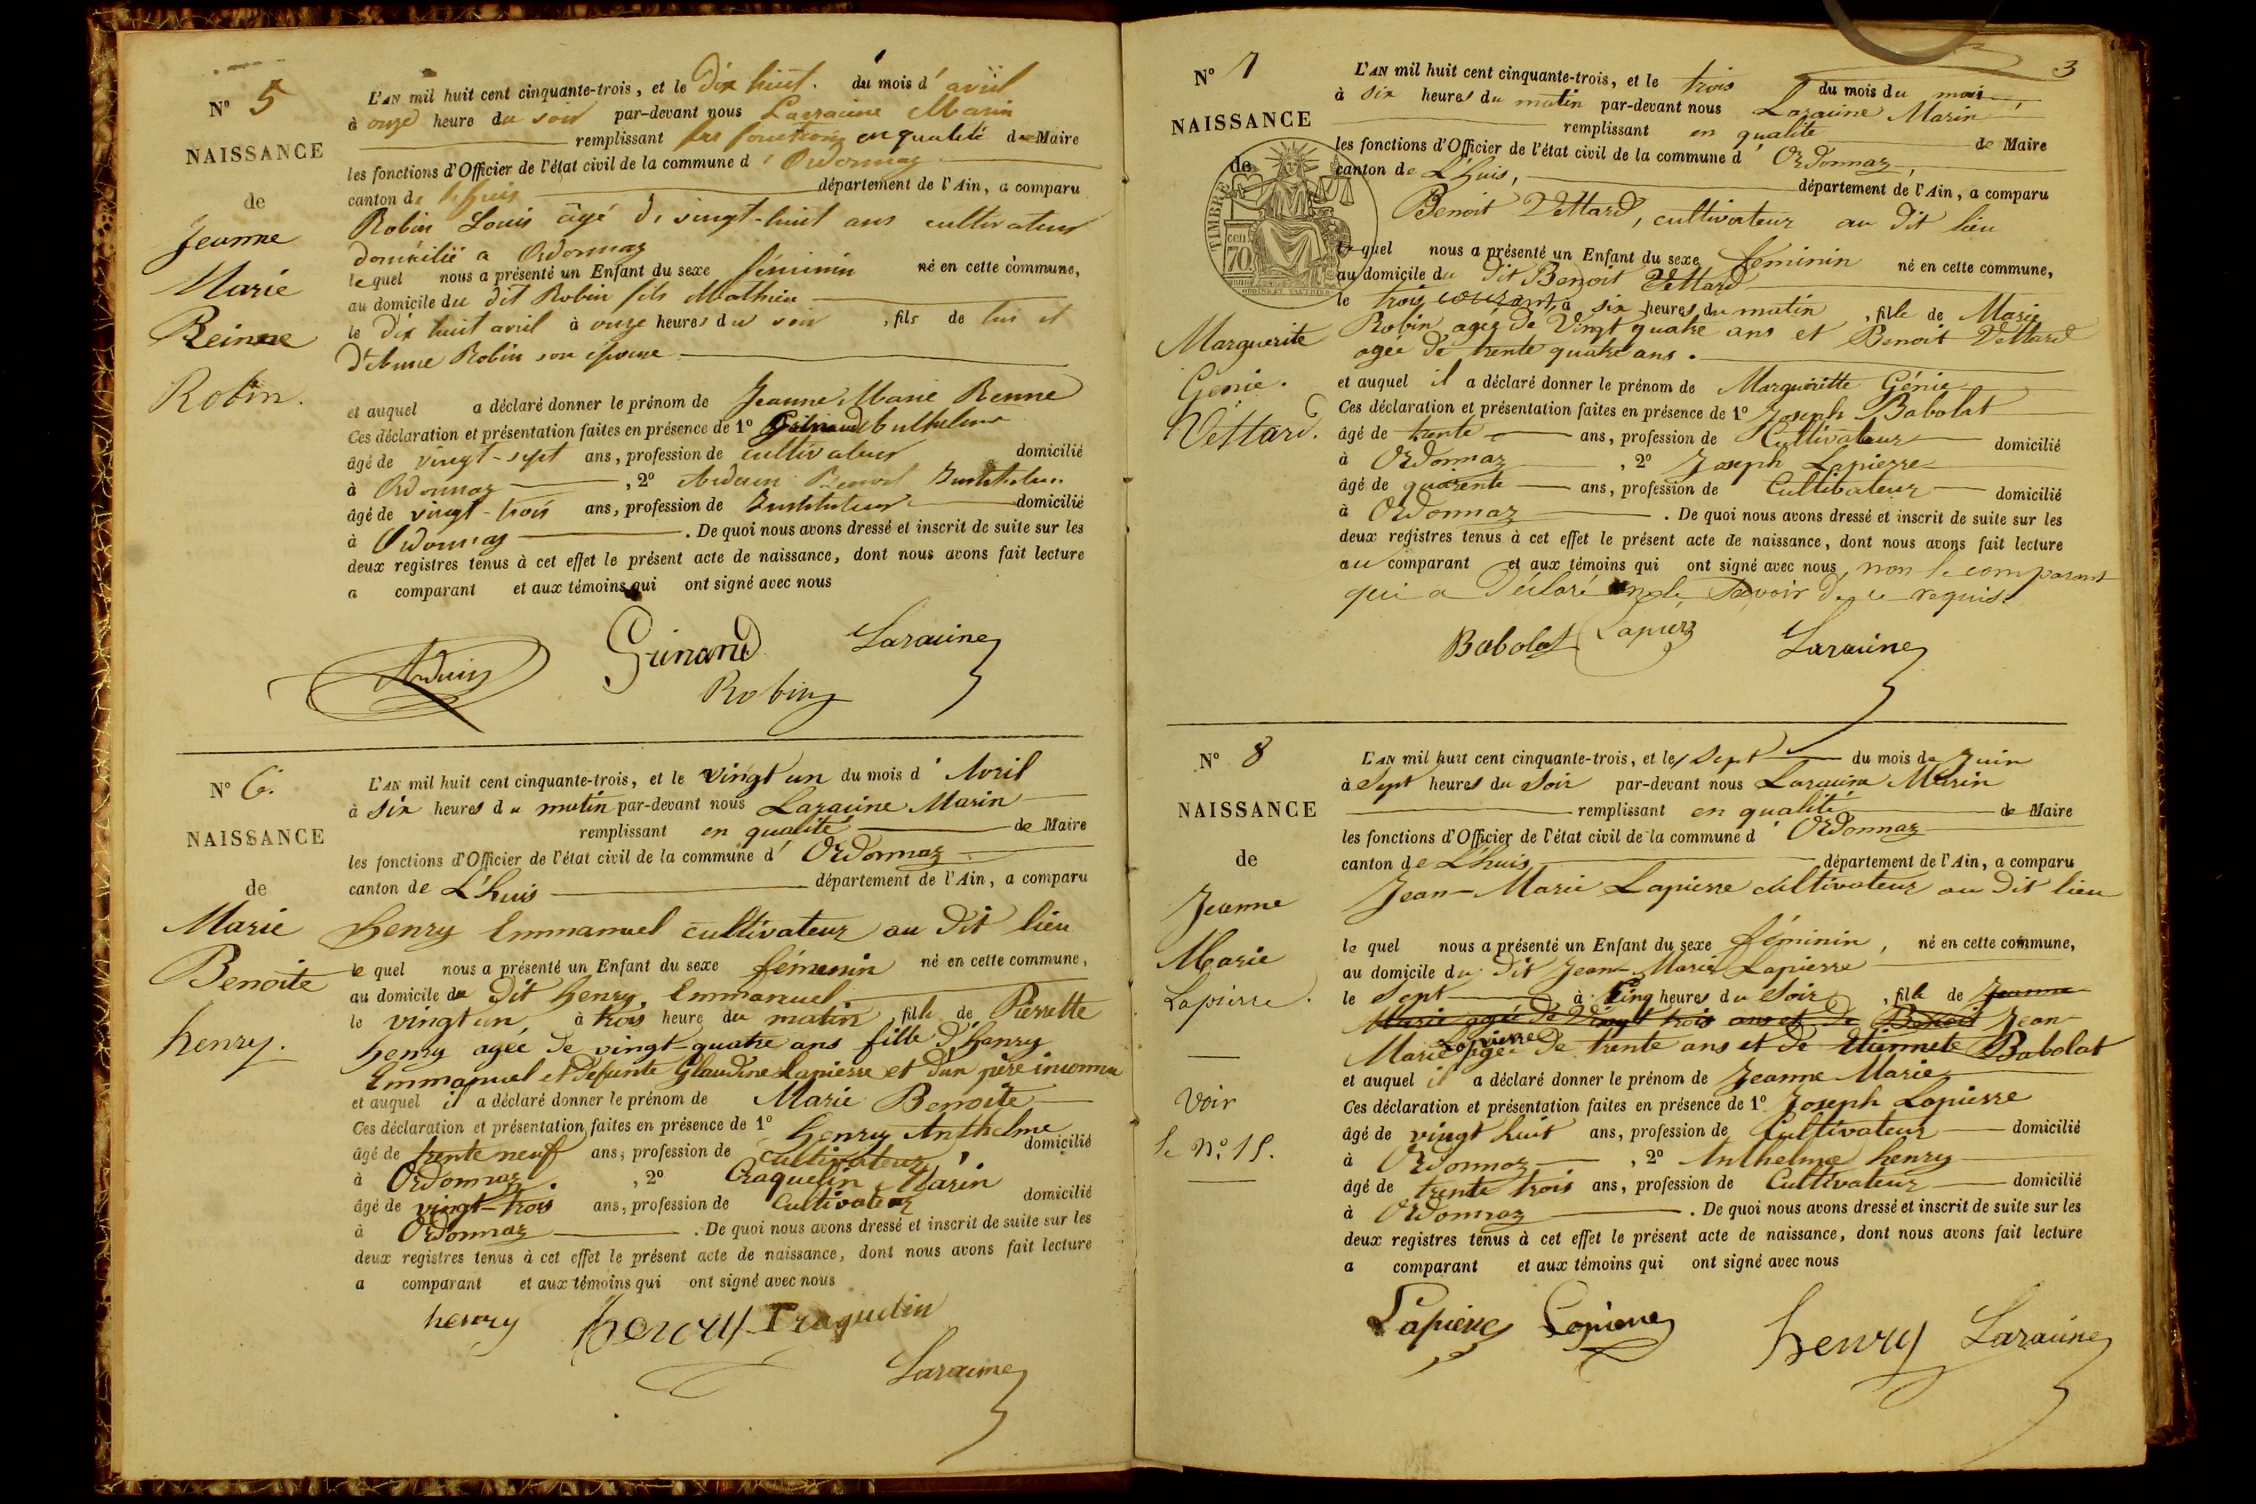 N° 5
NAISSANCE
de
Jeanne
Marie
Reinne
Robin.
L'AN mil huit cent cinquante-trois, et le Dix huit. du mois d'avril
à onze heure du soir par-devant nous Laraine Marin
remplissant les fonctions en qualité de Maire
les fonctions d'Officier de l'état civil de la commune d'Ordonnaz
canton de Lhuis département de l'Ain, a comparu
Robin Louis âgé de vingt-huit ans cultivateur
domicilié a Ordonnaz
lequel nous a présenté un Enfant du sexe féminin né en cette commune,
au domicile du dit Robin fils Mathieu
le dix huit avril à onze heures du soir, fils de lui et
Robin son épouse
et auquel a déclaré donner le prénom de Jeanne Marie Renne
Ces déclaration et présentation faites en présence de 1°
âgé de vingt-sept ans, profession de cultivateur domicilié
à Ordonnaz, 2° Arduin Benoit Instituteur
âgé de vingt-trois ans, profession de Instituteur domicilié
à Ordonnaz. De quoi nous avons dressé et inscrit de suite sur les
deux registres tenus à cet effet le présent acte de naissance, dont nous avons fait lecture
a comparant et aux témoins qui ont signé avec nous
Arduin Guinand Laraine
Robin
N° 6.
NAISSANCE
de
Marie
Benoite
henry.
L'AN mil huit cent cinquante-trois, et le vingt un du mois d'Avril
à six heures du matin par-devant nous Laraine Marin
remplissant en qualité de Maire
les fonctions d'Officier de l'état civil de la commune d'Ordonnaz
canton de L'huis département de l'Ain, a comparu
henry Emmanuel cultivateur au Dit lieu
lequel nous a présenté un Enfant du sexe féménin né en cette commune,
au domicile du Dit henry Emmanuel
le vingt un à trois heure du matin, fille de Pierrette
henry agée de vingt-quatre ans fille d'henry
Emmanuel et defunte Glaudine Lapierre et d'un père inconnu
et auquel il a déclaré donner le prénom de Marie Benoite
Ces déclaration et présentation faites en présence de 1° henry Anthelme
âgé de trente neuf ans, profession de cultivateur, domicilié
à Ordonnaz., 2° Craquelin Marin
âgé de vingt-trois ans, profession de Cultivateur domicilié
à Ordonnaz. De quoi nous avons dressé et inscrit de suite sur les
deux registres tenus à cet effet le présent acte de naissance, dont nous avons fait lecture
a comparant et aux témoins qui ont signé avec nous
henry henry Craquelin
Laraine
3
N° 7
NAISSANCE
de
TIMBRE
cen
70
Marguerite
Génie.
Vettard.
L'AN mil huit cent cinquante-trois, et le trois du mois du mai,
à six heures du matin par-devant nous Laraine Marin
remplissant en qualité de Maire
les fonctions d'Officier de l'état civil de la commune d'Ordonnaz,
canton de L'huis, département de l'Ain, a comparu
Benoit Vettard, cultivateur au Dit lieu
lequel nous a présenté un Enfant du sexe féminin né en cette commune,
au domicile du Dit Benoit Vettard
le trois courant, à six heures du matin, fille de Marie
Robin agée de Vingt quatre ans et Benoit Vettard
agée de trente quatre ans.
et auquel il a déclaré donner le prénom de Margueritte Génie
Ces déclaration et présentation faites en présence de 1° Joseph Babolat
âgé de trente ans, profession de Cultivateur domicilié
à Ordonnaz, 2° Joseph Lapierre
âgé de quarente ans, profession de Cultivateur domicilié
à Ordonnaz. De quoi nous avons dressé et inscrit de suite sur les
deux registres tenus à cet effet le présent acte de naissance, dont nous avons fait lecture
au comparant et aux témoins qui ont signé avec nous, non le comparant
qui a Déclaré ne le Savoir de ce requis.
Babolat Lapierre Laraine
N° 8
NAISSANCE
de
Jeanne
Marie
Lapierre.
Voir
le N° 15.
L'AN mil huit cent cinquante-trois, et le Sept du mois de Juin
à Sept heures du Soir par-devant nous Laraine Marin
remplissant en qualité de Maire
les fonctions d'Officier de l'état civil de la commune d'Ordonnaz
canton de L'huis département de l'Ain, a comparu
Jean-Marie Lapierre cultivateur au Dit lieu
lequel nous a présenté un Enfant du sexe féminin, né en cette commune,
au domicile du Dit Jean-Marie Lapierre
le Sept à Cinq heures du Soir, fille de Jeanne
Marie agée de Vingt trois ans et de Benoit Jean-
Marie Lapierre agée De trente ans et de Etiennete Babolat
et auquel il a déclaré donner le prénom de Jeanne Marie
Ces déclaration et présentation faites en présence de 1° Joseph Lapierre
âgé de vingt huit ans, profession de Cultivateur domicilié
à Ordonnoz, 2° Anthelme henry
âgé de trente trois ans, profession de Cultivateur domicilié
à Ordonnaz. De quoi nous avons dressé et inscrit de suite sur les
deux registres tenus à cet effet le présent acte de naissance, dont nous avons fait lecture
a comparant et aux témoins qui ont signé avec nous
Lapierre Lapierre henry Laraine